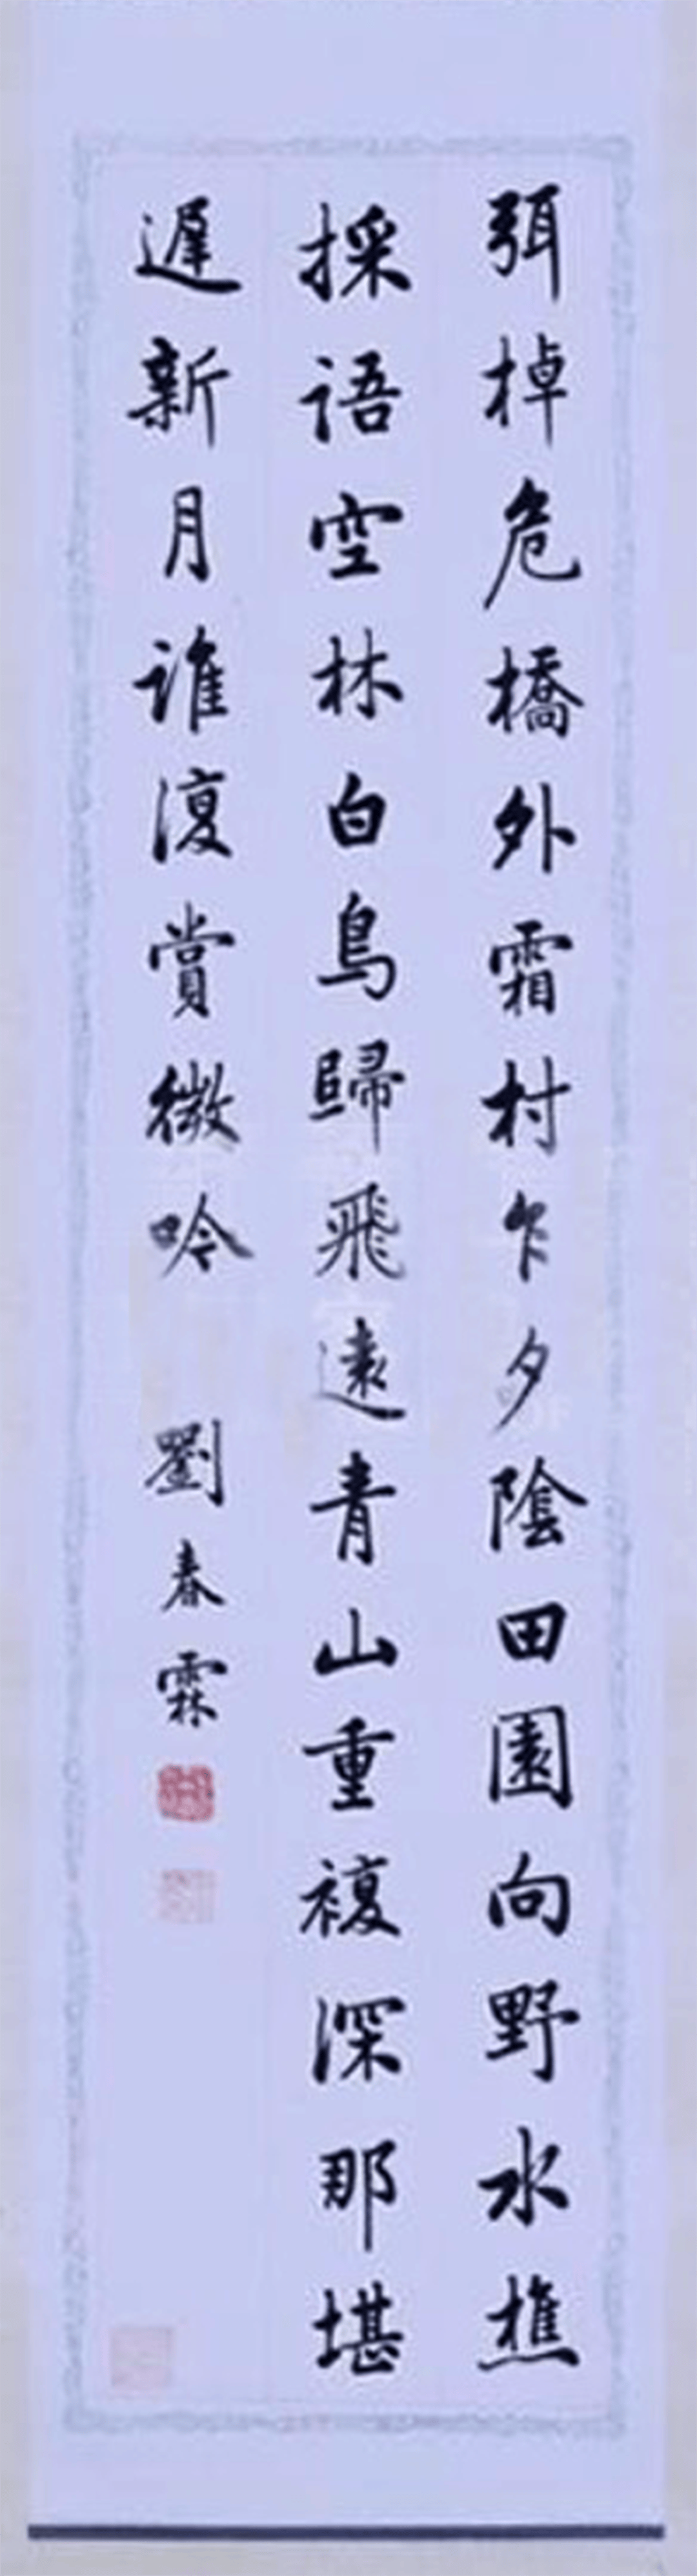 弭棹危橋外霜村乍夕陰田園向野水樵
採語空林白鳥歸飛遠青山重複深那堪
遲新月誰復賞微吟
劉春霖